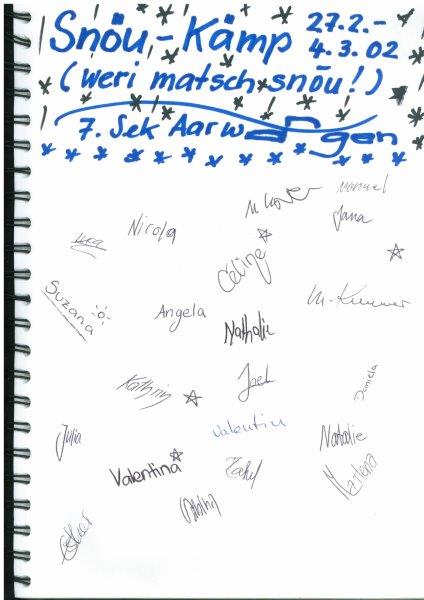 Snöu-Kämp 27.2.-
4.3.02
(weri matsch snöu!)
7. Sek Aarwangen
Manuel
Jana
Nicola
Luca
Céline
Suzana
Angela
M. Kummer
Nathalie
Kathrin
Joel
Daniela
Julia
Valentin
Natalie
Valentina
Marlena
Esther